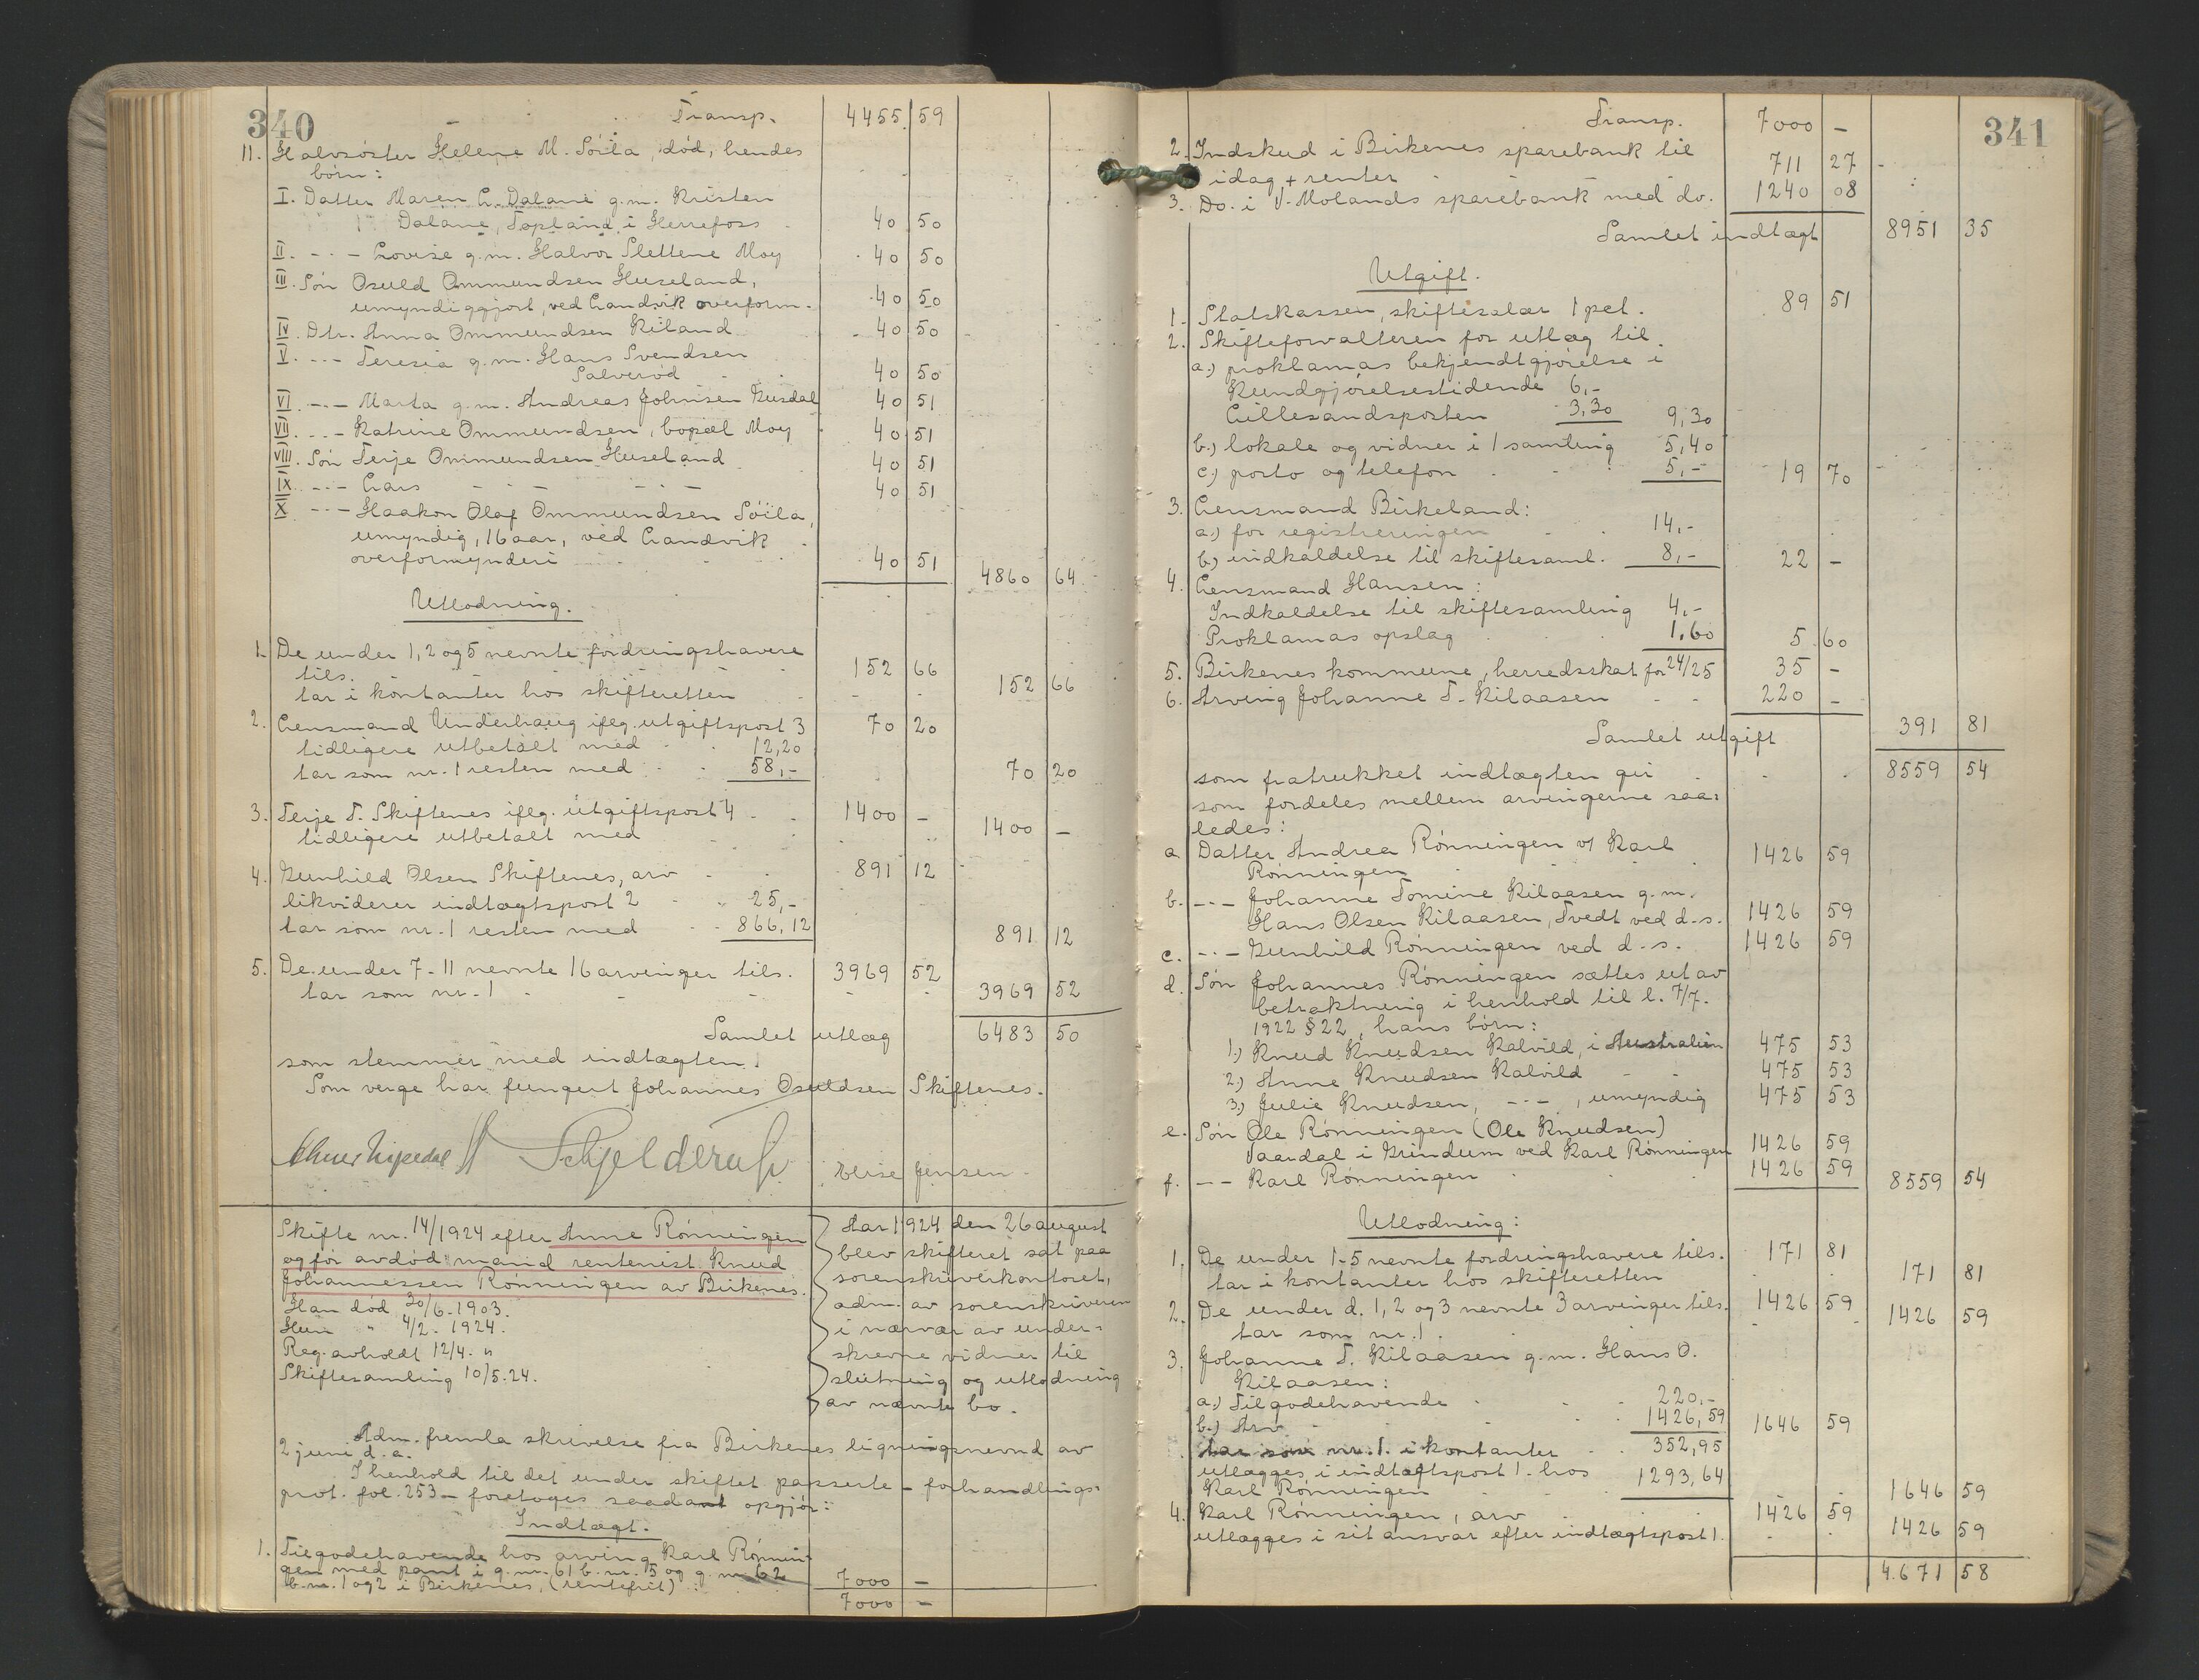 340
Transp. 4455 59
11. Halvsöster Helene M. Söila, död, hendes
börn:
I. Datter Maren C. Dalane g.m. Kristen
Dalane, Topland i Herrefoss 40 50
II. -"- Lovise g.m. Halvor Slettene Moy 40 50
III. Sön Osuld Ommundsen Huseland,
umyndiggjort, ved Landvik overform. 40 50
IV. Dtr. Anna Ommundsen Kiland 40 50
V. -"- Teresia g.m. Hans Svendsen
Salveröd 40 50
VI. -"- Marta g.m. Andreas Johnsen Gusdal 40 51
VII. -"- Katrine Ommundsen, bopæl Moy 40 51
VIII. Sön Terje Ommundsen Huseland 40 51
IX. -"- Lars -"- -"- 40 51
X. -"- Haakon Olaf Ommundsen Söila,
umyndig, 16 aar, ved Landvik
overformynderi 40 51 4860 64
Utlodning.
1. De under 1, 2 og 5 nevnte fordringshavere
tils. 152 66
tar i kontanter hos skifteretten 152 66
2. Lensmand Underhaug iflg. utgiftspost 3 70 20
tidligere utbetalt med 12,20
tar som nr. 1 resten med 58,- 70 20
3. Terje T. Skiftenes iflg. utgiftspost 4 1400 -
tidligere utbetalt med 1400 -
4. Gunhild Olsen Skiftenes, arv 891 12
likviderer indtægtspost 2 25,-
tar som nr. 1 resten med 866,12 891 12
5. De under 7-11 nevnte 16 arvinger tils. 3969 52
tar som nr. 1 3969 52
Samlet utlæg 6483 50
som stemmer med indtægten.
Som verge har fungert Johannes Osuldsen Skiftenes.
Schjelderup
Jensen
Skifte nr. 14/1924 efter Anne Rönningen
og för avdöd mand rentenist Knud
Johannessen Rönningen av Birkenes.
Han död 30/6-1903.
Hun " 4/2-1924.
Reg. avholdt 12/4. "
Skiftesamling 10/5-24.
Aar 1924 den 26 august
blev skifteret sat paa
sorenskriverkontoret,
adm. av sorenskriveren
i nærvær av under-
skrevne vidner til
slutning og utlodning
av nævnte bo.
Adm. fremla skrivelse fra Birkenes ligningsnevnd av
2 juni d.a.
I henhold til det under skiftet passerte - forhandlings-
prot. fol. 253 - foretoges saadant opgjör:
Indtægt.
1. Tilgodehavende hos arving Karl Rönnin-
gen med pant i g.nr. 61 b.nr. 5 og g.nr. 62
b.nr. 1 og 2 i Birkenes, (rentefrit) 7000 -
7000 -
341
Transp. 7000 -
2. Indskud i Birkenes sparebank til
idag + renter 711 27
3. Do. i V. Molands sparebank med do. 1240 08
Samlet indtægt 8951 35
Utgift.
1. Statskassen, skiftesalær 1 pct. 89 51
2. Skifteforvalteren for utlæg til
a.) proklamas bekjendtgjörelse i
Kundgjörelsestidende 6,-
Lillesandsposten 3,30 9,30
b.) lokale og vidner i 1 samling 5,40
c.) porto og telefon 5,- 19 70
3. Lensmand Birkeland:
a.) for registreringen 14,-
b.) indkaldelse til skiftesaml. 8,- 22 -
4. Lensmand Hansen:
Indkaldelse til skiftesamling 4,-
Proklamas opslag 1,60 5 60
5. Birkenes kommune, herredsskat for 24/25 35 -
6. Arving Johanne T. Kilaasen 220 -
Samlet utgift 391 81
som fratrukket indtægten gir 8559 54
som fordeles mellem arvingerne saa-
ledes:
a. Datter Andrea Rönningen v/ Karl
Rönningen 1426 59
b. -"- Johanne Tomine Kilaasen g.m.
Hans Olsen Kilaasen, Tvedt ved d.s. 1426 59
c. -"- Gunhild Rönningen ved d.s. 1426 59
d. Sön Johannes Rönningen sættes ut av
betraktning i henhold til l. 7/7.
1922 § 22, hans börn:
1.) Knud Knudsen Kalvild, i Australien 475 53
2.) Anne Knudsen Kalvild 475 53
3.) Julie Knudsen, -"- , umyndig 475 53
e. Sön Ole Rönningen (Ole Knudsen)
Vaardal i Grindum ved Karl Rönningen 1426 59
f. -"- Karl Rönningen 1426 59 8559 54
Utlodning:
1. De under 1-5 nevnte fordringshavere tils. 171 81
tar i kontanter hos skifteretten 171 81
2. De under d. 1, 2 og 3 nevnte 3 arvinger tils. 1426 59
tar som nr. 1. 1426 59
3. Johanne T. Kilaasen g.m. Hans O.
Kilaasen:
a.) Tilgodehavende 220,-
b.) Arv 1426,59 1646 59
tar som nr. 1. i kontanter 352,95
utlægges i indtægtspost 1. hos
Karl Rönningen 1293,64 1646 59
4. Karl Rönningen, arv 1426 59
utlægges i sit ansvar efter indtægtspost 1. 1426 59
4.671 58